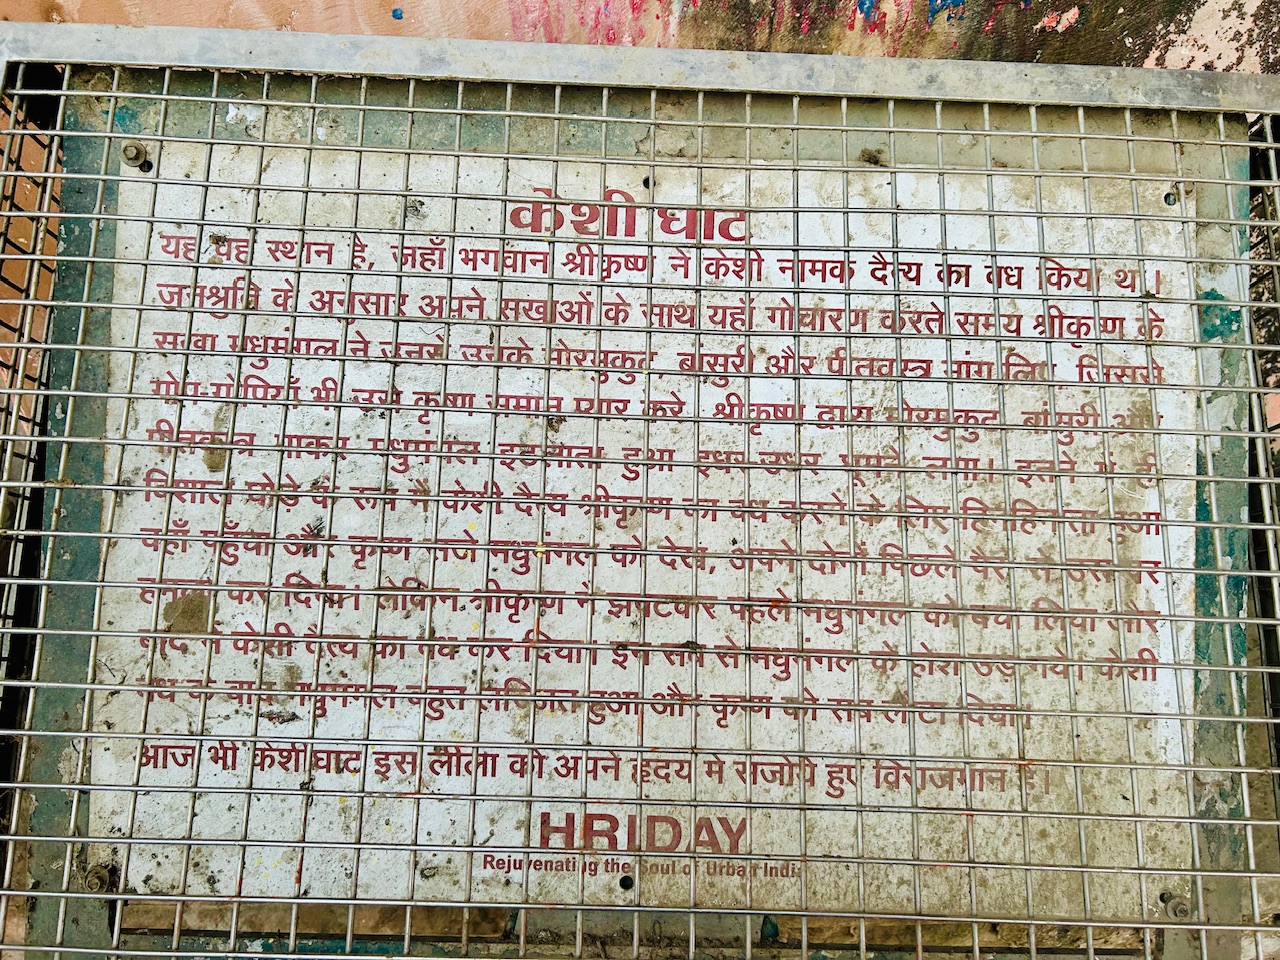 केशी घाट
यह वह स्थान है, जहाँ भगवान श्रीकृष्ण ने केशी नामक दैत्य का वध किया था।
जनश्रुति के अनुसार अपने सखाओं के साथ यहाँ गोचारण करते समय श्रीकृष्ण के
सखा मधुमंगल ने उनसे उनके मोरमुकुट, बांसुरी और पीतवस्त्र मांग लिए, जिससे
गोप-गोपियाँ भी उसे कृष्ण समान प्यार करें। श्रीकृष्ण द्वारा मोरमुकुट, बांसुरी और
पीतवस्त्र पाकर मधुमंगल इठलाता हुआ इधर-उधर घूमने लगा। इतने में ही
विशाल घोड़े के रूप में केशी दैत्य श्रीकृष्ण का वध करने के लिए हिनहिनाता हुआ
वहाँ पहुँचा और कृष्ण सजे मधुमंगल को देख, अपने दोनों पिछले पैरों से उस पर
हमला कर दिया। लेकिन श्रीकृष्ण ने झपटकर पहले मधुमंगल को बचा लिया और
बाद में केशी दैत्य का वध कर दिया। इस सब से मधुमंगल के होश उड़ गये। केशी
वध के बाद मधुमंगल बहुत लज्जित हुआ और कृष्ण को सब लौटा दिया।
आज भी केशी घाट इस लीला को अपने हृदय में संजोये हुए विराजमान है।
HRIDAY
Rejuvenating the Soul of Urban India